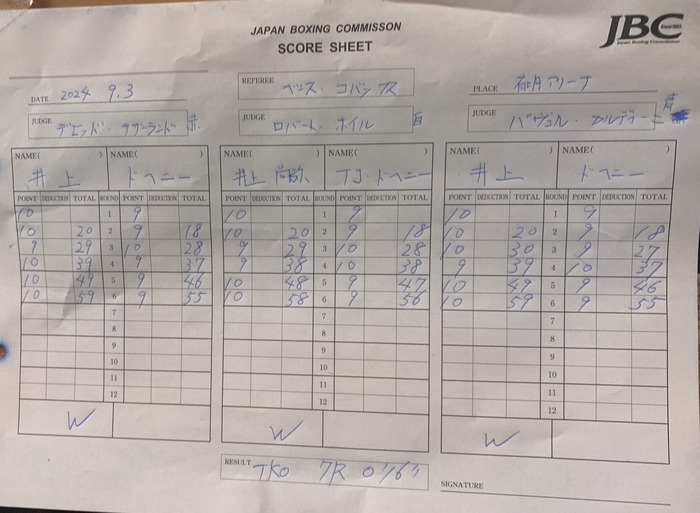 JAPAN BOXING COMMISSON
SCORE SHEET
JBC
DATE 2024 9.3
REFEREE ベンス・コバックス
PLACE 有明アリーナ
JUDGE デビッド・サザーランド 赤
JUDGE ロバート・ホイル 白
JUDGE パヴェル・カルディーニ 青
NAME( ) NAME( ) NAME( ) NAME( ) NAME( ) NAME( )
井上 ドヘニー 井上 尚弥 TJ・ドヘニー 井上 ドヘニー
POINT DEDUCTION TOTAL ROUND POINT DEDUCTION TOTAL POINT DEDUCTION TOTAL ROUND POINT DEDUCTION TOTAL POINT DEDUCTION TOTAL ROUND POINT DEDUCTION TOTAL
10 1 9 10 1 9 10 1 9
10 20 2 9 18 10 20 2 9 18 10 20 2 9 18
9 29 3 10 28 9 29 3 10 28 10 30 3 9 27
10 39 4 9 37 9 38 4 10 38 9 39 4 10 37
10 49 5 9 46 10 48 5 9 47 10 49 5 9 46
10 59 6 9 55 10 58 6 9 56 10 59 6 9 55
7 7 7
8 8 8
9 9 9
10 10 10
11 11 11
12 12 12
W W W
RESULT TKO 7R 0'16"
SIGNATURE